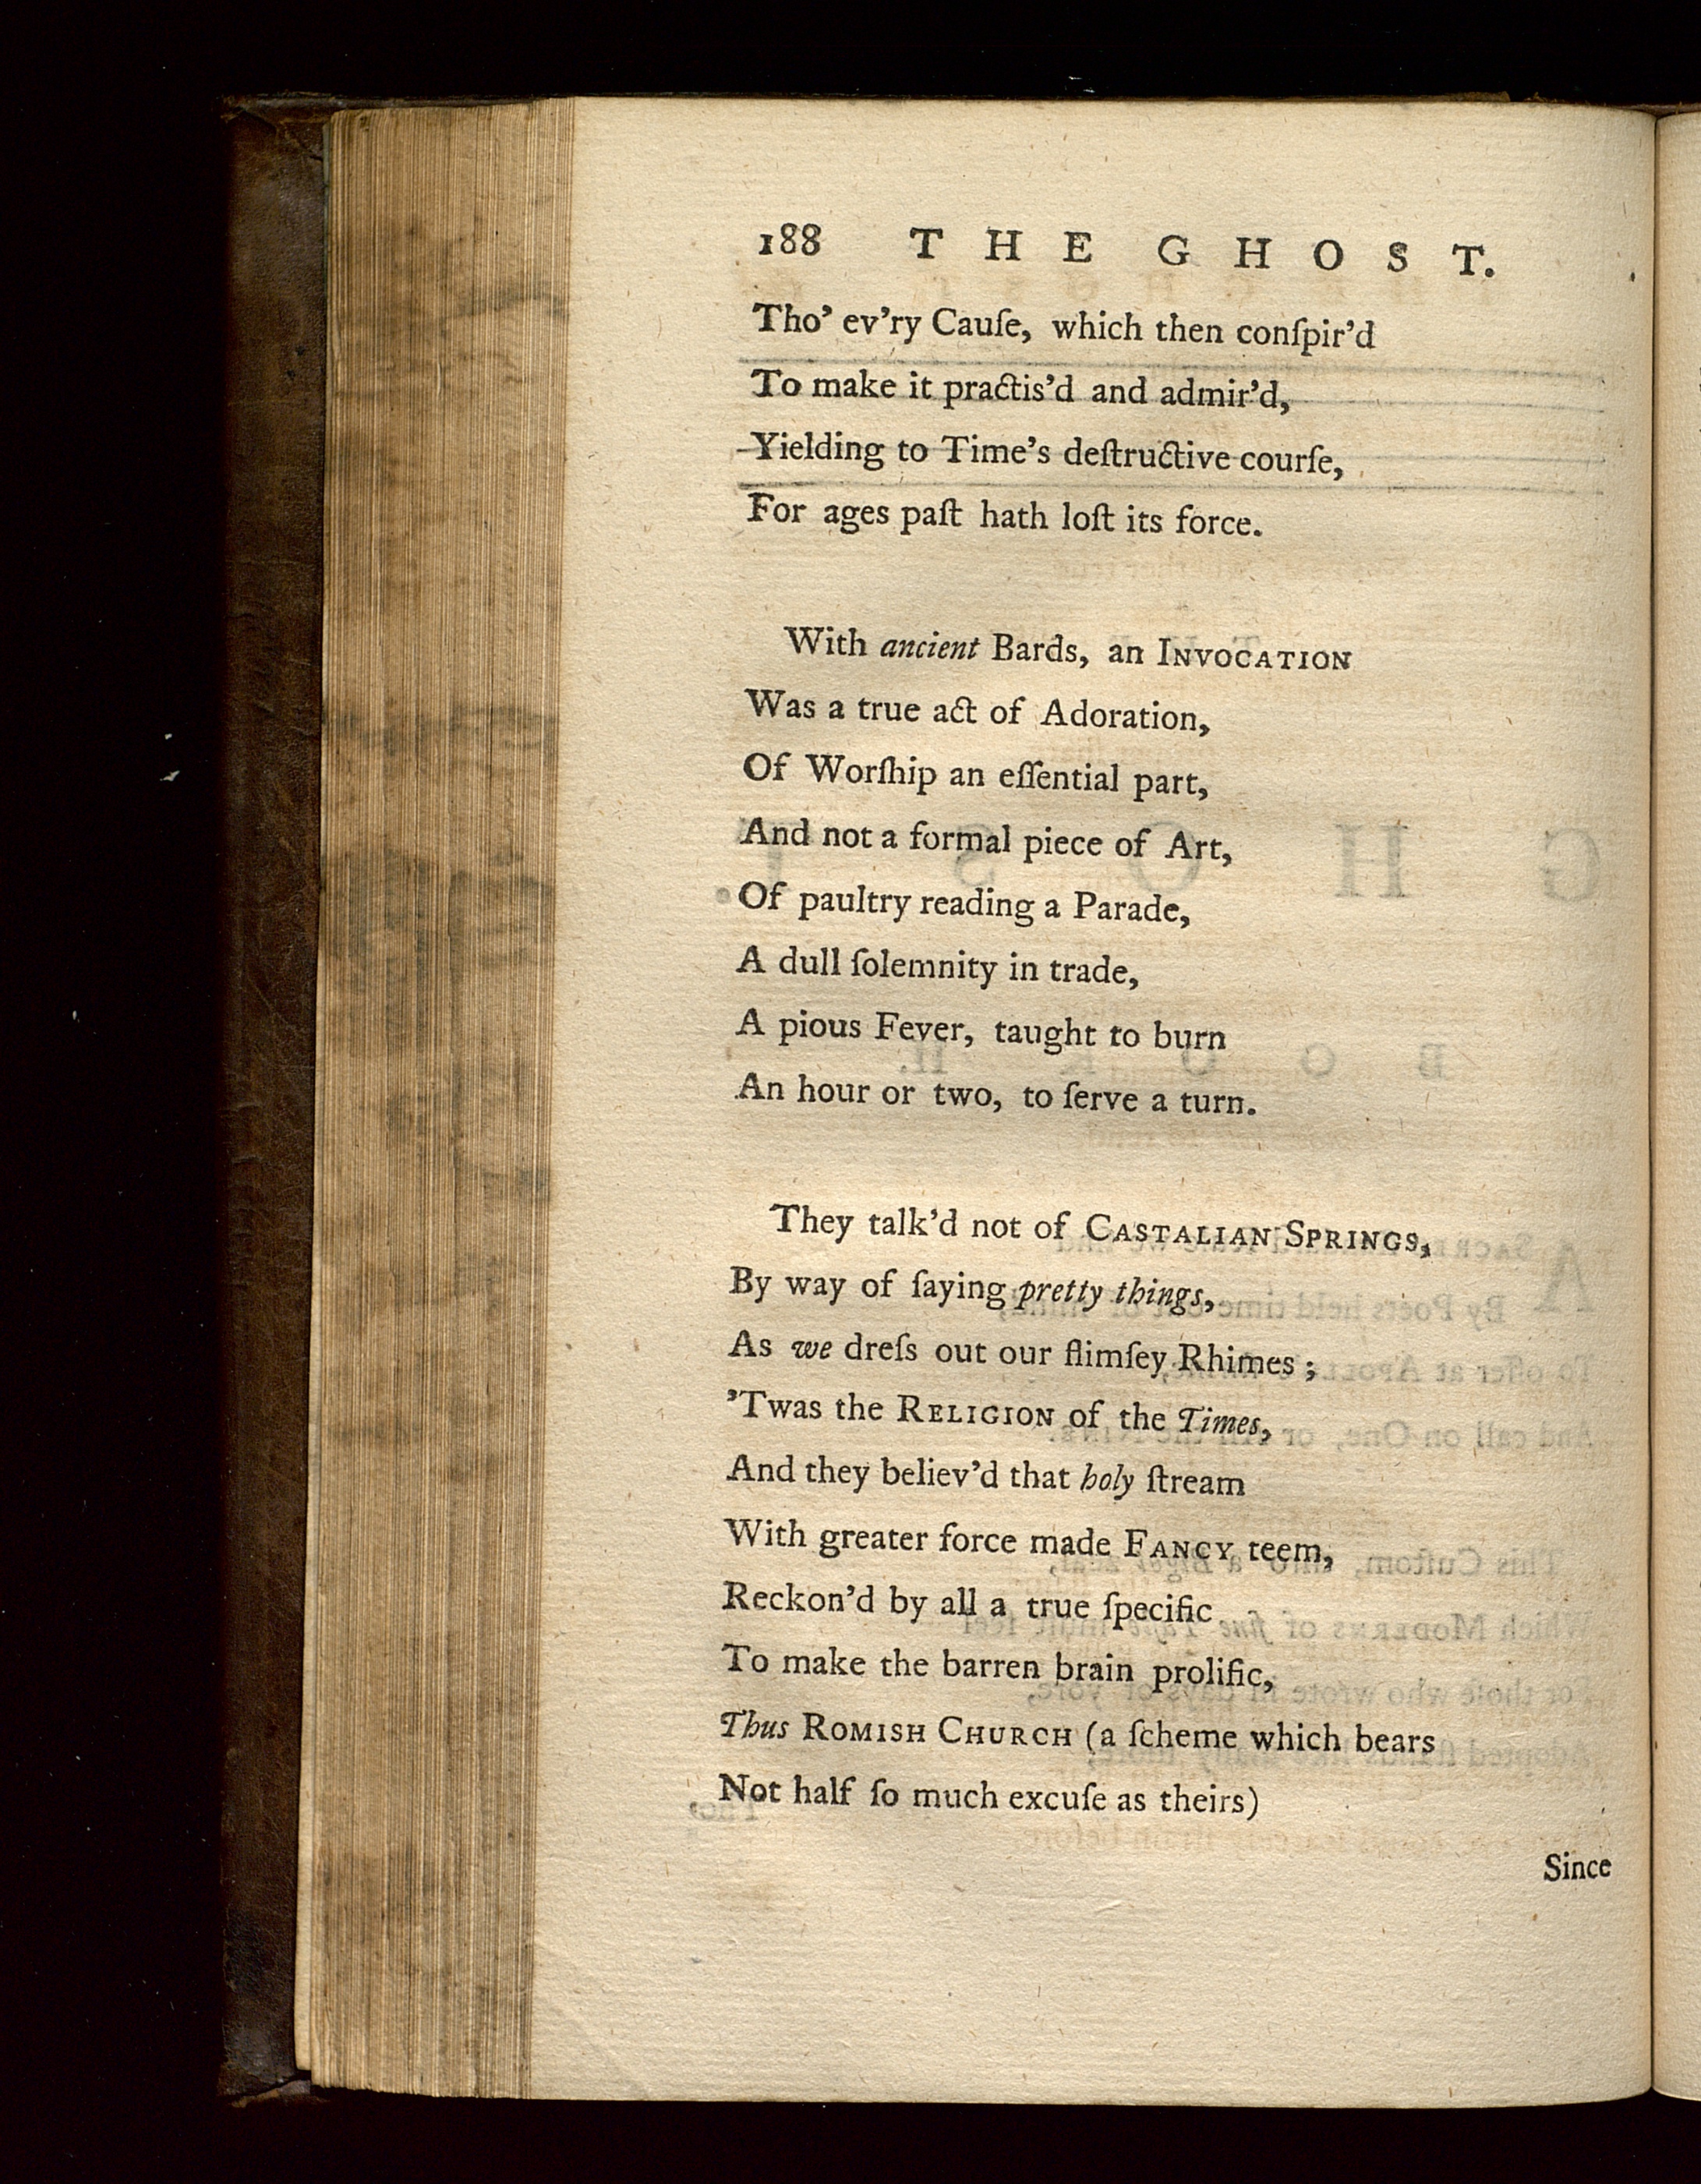 188 THE GHOST.
Tho' ev'ry Cauſe, which then conſpir'd
To make it practis'd and admir'd,
Yielding to Time's deſtructive courſe,
For ages paſt hath loſt its force.
With ancient Bards, an INVOCATION
Was a true act of Adoration,
Of Worſhip an eſſential part,
And not a formal piece of Art,
Of paultry reading a Parade,
A dull ſolemnity in trade,
A pious Fever, taught to burn
An hour or two, to ſerve a turn.
They talk'd not of CASTALIAN SPRINGS,
By way of ſaying pretty things,
As we dreſs out our flimſey Rhimes ;
'Twas the RELIGION of the Times,
And they believ'd that holy ſtream
With greater force made FANCY teem,
Reckon'd by all a true ſpecific
To make the barren brain prolific,
Thus ROMISH CHURCH (a ſcheme which bears
Not half ſo much excuſe as theirs)
Since